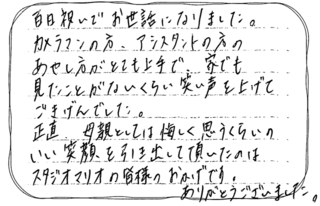 百日祝いでお世話になりました。
カメラマンの方、アシスタントの方の
あやし方がとても上手で、家でも
見たことがないくらい笑い声を上げて
ごきげんでした。
正直、母親としては悔しく思うくらいの
いい笑顔を引き出して頂いたのは
スタジオマリオの皆様のおかげです。
ありがとうございました。